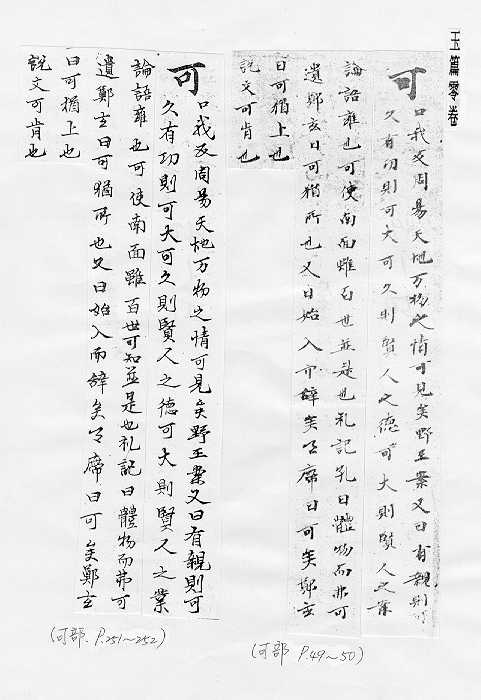 玉篇零卷
可
口我反周易天地万物之情可見矣野王案又曰有親則可
久有功則可大可久則賢人之德可大則賢人之業
論語雍也可使南面雖百世並是也礼記孔曰體物而弗可
遺鄭玄曰可猶所也又曰始入而辞矣即席曰可矣鄭玄
曰可猶止也
說文可肯也
可
口我反周易天地万物之情可見矣野王案又曰有親則可
久有功則可大可久則賢人之德可大則賢人之業
論語雍也可使南面雖百世可知並是也礼記曰體物而弗可
遺鄭玄曰可猶所也又曰始入而辞矣 席曰可矣鄭玄
曰可猶止也
說文可肯也
(可部 P.49～50)
(可部. P.251～252)